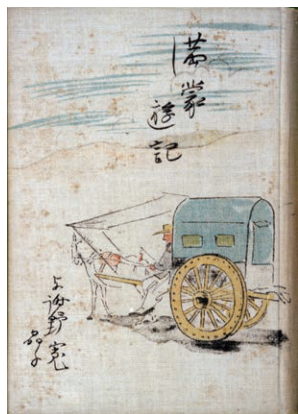 満蒙
遊記
与謝野寛
晶子